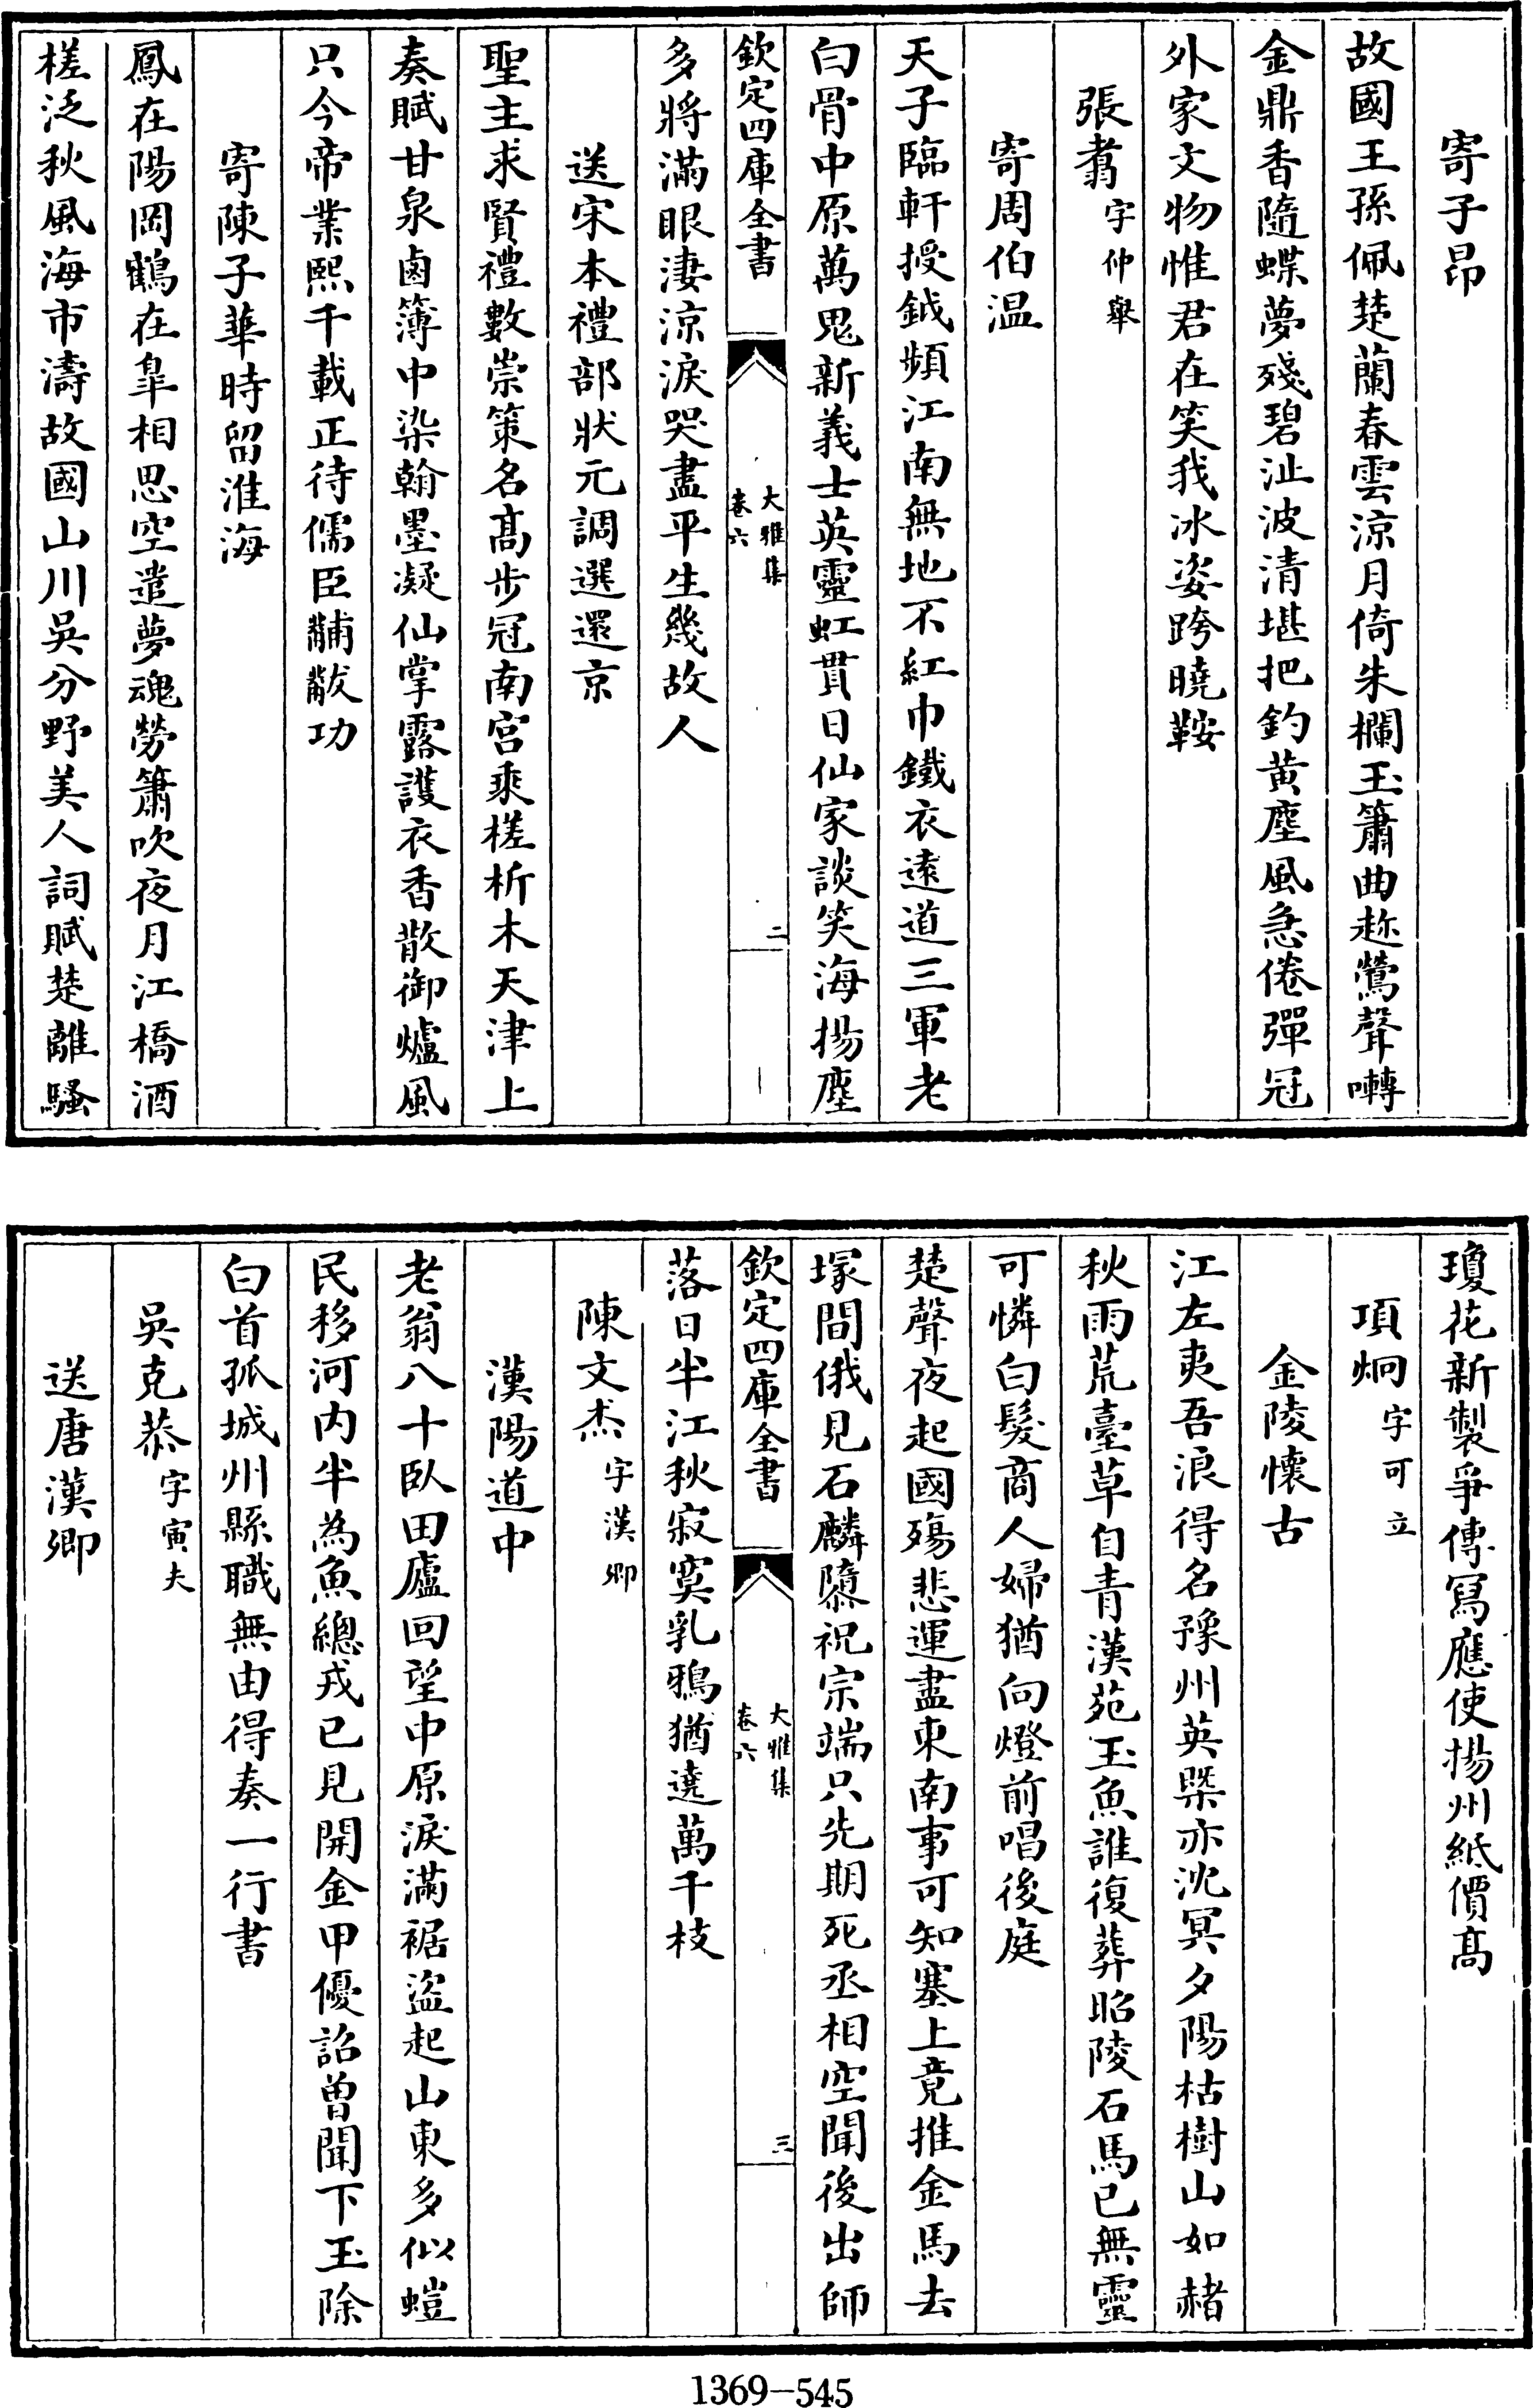 寄子昂
故國王孫佩楚蘭春雲涼月倚朱欄玉簫曲趂鶯聲囀
金鼎香隨蝶夢殘碧沚波清堪把釣黄塵風急倦彈冠
外家文物惟君在笑我冰姿跨曉鞍
張翥字仲舉
寄周伯温
天子臨軒授鉞頻江南無地不紅巾鐵衣逺道三軍老
白骨中原萬鬼新義士英靈虹貫日仙家談笑海揚塵
欽定四庫全書
大雅集
卷六
二
多將滿眼凄涼淚哭盡平生幾故人
送宋本禮部狀元調選還京
聖主求賢禮數崇策名髙步冠南宫乗槎析木天津上
奏賦甘泉鹵簿中染翰墨凝仙掌露護衣香散御爐風
只今帝業熙千載正待儒臣黼黻功
寄陳子華時留淮海
鳳在陽岡鶴在臯相思空遣夢魂勞簫吹夜月江橋酒
槎泛秋風海市濤故國山川吳分野美人詞賦楚離騷
瓊花新製爭傳寫應使揚州紙價髙
項炯字可立
金陵懷古
江左夷吾浪得名豫州英槩亦沈冥夕陽枯樹山如赭
秋雨荒臺草自青漢苑玉魚誰復葬昭陵石馬已無靈
可憐白髮商人婦猶向燈前唱後庭
楚聲夜起國殤悲運盡東南事可知塞上竟推金馬去
塚間俄見石麟隳祝宗端只先期死丞相空聞後出師
欽定四庫全書
大雅集
卷六
三
落日半江秋寂寞乳鴉猶遶萬千枝
陳文杰字漢卿
漢陽道中
老翁八十臥田廬回望中原淚滿裾盜起山東多似螘
民移河内半為魚總戎已見開金甲優詔曽聞下玉除
白首孤城州縣職無由得奏一行書
吳克恭字寅夫
送唐漢卿
1369-545